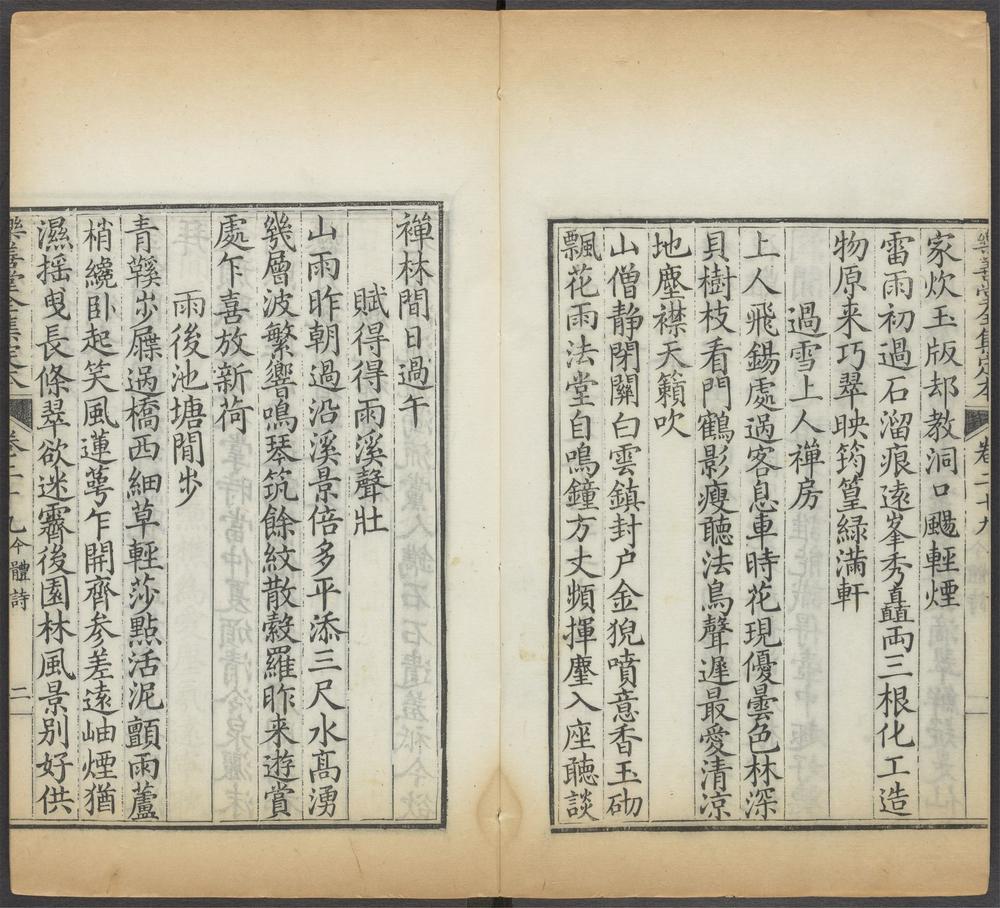 樂善堂全集定本 卷二十九 今體詩
家炊玉版却教洞口颺輕煙
雷雨初過石溜痕遠峯秀矗兩三根化工造
物原来巧翠映筠篁緑滿軒
過雪上人禅房
上人飛錫處過客息車時花現優曇色林深
貝樹枝看門鶴影瘦聽法鳥聲遲最愛清凉
地塵襟天籟吹
山僧静閉關白雲鎮封户金猊噴意香玉砌
飄花雨法堂自鳴鐘方丈頻揮麈入座聽談
禅林間日過午
賦得得雨溪聲壯
山雨昨朝過沿溪景倍多平添三尺水高湧
幾層波繁響鳴琴筑餘紋散縠羅昨来遊賞
處乍喜放新荷
雨後池塘閒步
青鞵步屧過橋西細草輕莎點活泥顫雨蘆
梢繞卧起笑風蓮萼乍開齊参差遠岫煙猶
濕摇曳長條翠欲迷霽後園林風景别好供
樂善堂全集定本 卷二十九 今體詩 二